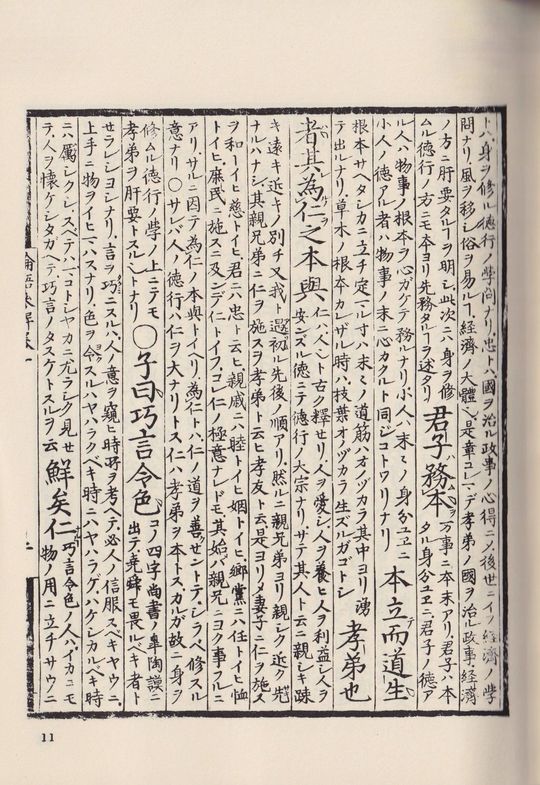 トハ身ヲ修ル徳行ノ學問ナリ忠トハ國ヲ治ル政事ノ心得ニノ後世ニイフ經濟ノ學
問ナリ風ヲ移シ俗ヲ易ルー經濟ノ大體也是章コレマデ孝弟ノ國ヲ治ル政事經濟
ノ方ニ肝要タルーヲ明シ此次ニハ身ヲ修
ムル德行ノ方ニモ本ヨリ先務タルーヲ述タリ
君子務本
萬事ニ本末アリ君子ハ本
タル身分ユヱニ君子ノ徳ア
ル人ハ物事ノ根本ヲ心ガケテ務ルナリ小人ハ末々ノ身分ユヱニ
小人ノ徳アル者ハ物事ノ末ニ心カクルト同ジコトワリナリ
本立而道生
根本サヘタシカニ立チ定マル寸ハ末々ノ道筋ハオノヅカラ其中ヨリ湧
テ出ルナリ草木ノ根本カレザル時ハ枝葉オノヅカラ生ズルガゴトシ
孝弟也
者其為仁之本與
仁ハ人ト古ク釋セリ人ヲ愛シ人ヲ養ヒ人ヲ利益シ人ヲ
安ンズル徳ニテ德行ノ大宗ナリサテ其人ト云ニ親シキ疎
キ遠キ近キノ別チ又我ト初先後ノ順アリ然ルニ親兄弟ヨリ親シク近ク先
ナルハナシ其親兄弟ニ仁ヲ施スヲ孝弟ト云ヒ孝友ト云是ヨリ妻子ニ仁ヲ施ス
ヲ和トイヒ慈トイヒ君ニハ忠ト云ヒ親戚ニハ睦トイヒ姻トイヒ鄉黨ニハ任トイヒ恤
トイヒ庶民ニ施スニ及ンデ仁トイフコレ仁ノ極意ナレドモ其始バ親兄弟ニヨク事フルニ
アリサルニ因テ為仁ノ本與トイヘリ為仁トハ仁ノ道ヲ善セントテシラベ修スル
意ナリ○サレバ人ノ徳行ハ仁ヲ大ナリトス仁ハ孝弟ヲ本トスルガ故ニ身ヲ
修ムル徳行ノ學ノ上ニテモ
孝弟ヲ肝要トスルトナリ
○子曰巧言令色
コノ四字尚書ノ皋陶謨ニ
出テ堯舜モ畏ルベキ者ト
セラレシヨシナリ言ヲ巧ニスルハ人ノ意ヲ窺ヒ時勢ヲ考ヘテ必人ノ信服スベキヤウニ
上手ニ物ヲイヒハスナリ色ヲ令スルハヤハラグベキ時ニハヤハラゲハゲシカルベキ時
ニハ厲シクシスベテコトシヤカニ尤ラシク見セ
テ人ヲ懷ケシタガヘテ巧言ノタスケトスルヲ云
鮮矣仁
巧言令色ノ人ハイカニモ
物ノ用ニ立チサウニ
11